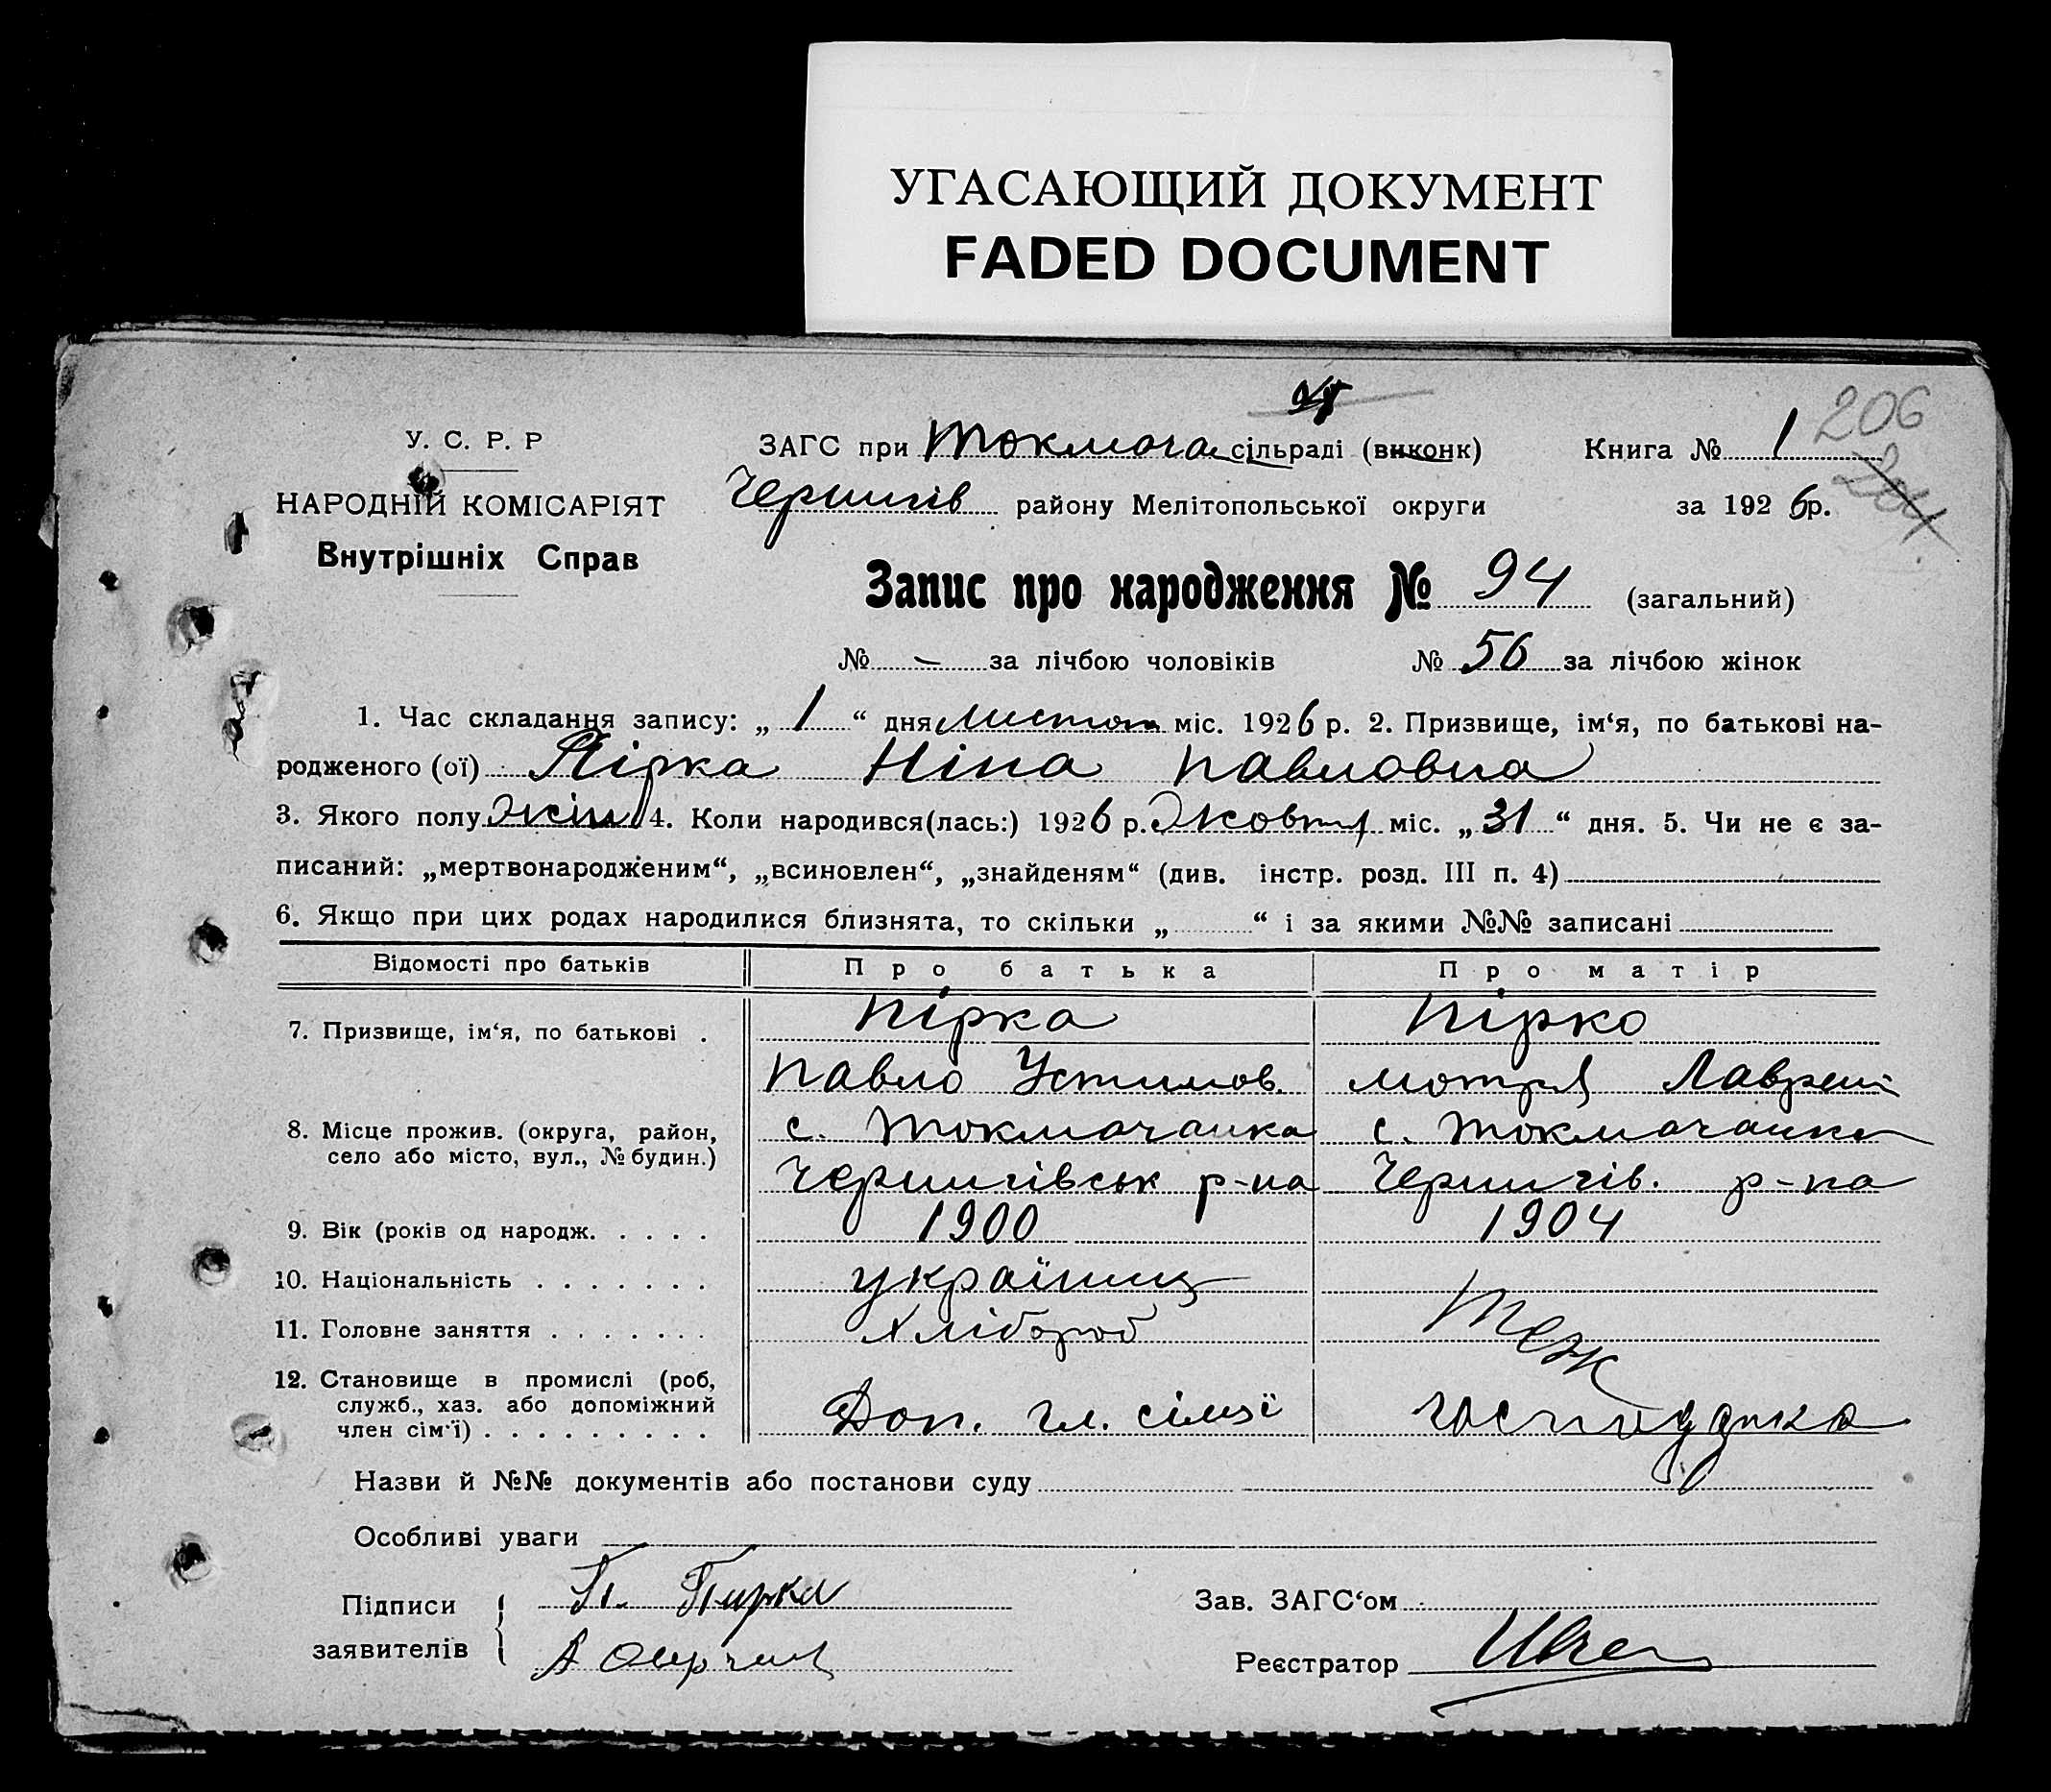 УГАСАЮЩИЙ ДОКУМЕНТ
FADED DOCUMENT
206
У. С. Р. Р
НАРОДНІЙ КОМІСАРІЯТ
Внутрішніх Справ
ЗАГС при Токмача сільраді (виконк)
Книга № 1
Чернигів району Мелітопольської округи
за 1926р.
Запис про народження № 94 (загальний)
№ - за лічбою чоловіків № 56 за лічбою жінок
1. Час складання запису: „ 1 “ дня Листоп міс. 1926 р. 2. Призвище, ім‘я, по батькові на-
родженого (ої) Пірка Ніна Павловна
3. Якого полу жін 4. Коли народився(лась:) 1926 р. Жовтн міс. „ 31 “ дня. 5. Чи не є за-
писаний: „мертвонародженим“, „всиновлен“, „знайденям“ (див. інстр. розд. III п. 4)
6. Якщо при цих родах народилися близнята, то скільки „ “ і за якими №№ записані
Відомості про батьків Про батька Про матір
7. Призвище, ім‘я, по батькові . Пірка Пірко
Павло Устимов. Мотря Лаврен
8. Місце прожив. (округа, район, с. Токмачанка с. Токмачанка
село або місто, вул., № будин.) Чернигівськ р-на Чернигів. р-на
9. Вік (років од народж. . . . . 1900 1904
10. Національність . . . . . . . українец
11. Головне заняття . . . . . . . Хлібороб теж
12. Становище в промислі (роб,
служб., хаз. або допоміжний
член сім‘ї) . . . . . . . . . Доп. чл. сімзї
Назви й №№ документів або постанови суду
Особливі уваги
Підписи П. Пирка
заявителів
Зав. ЗАГС‘ом
Реєстратор